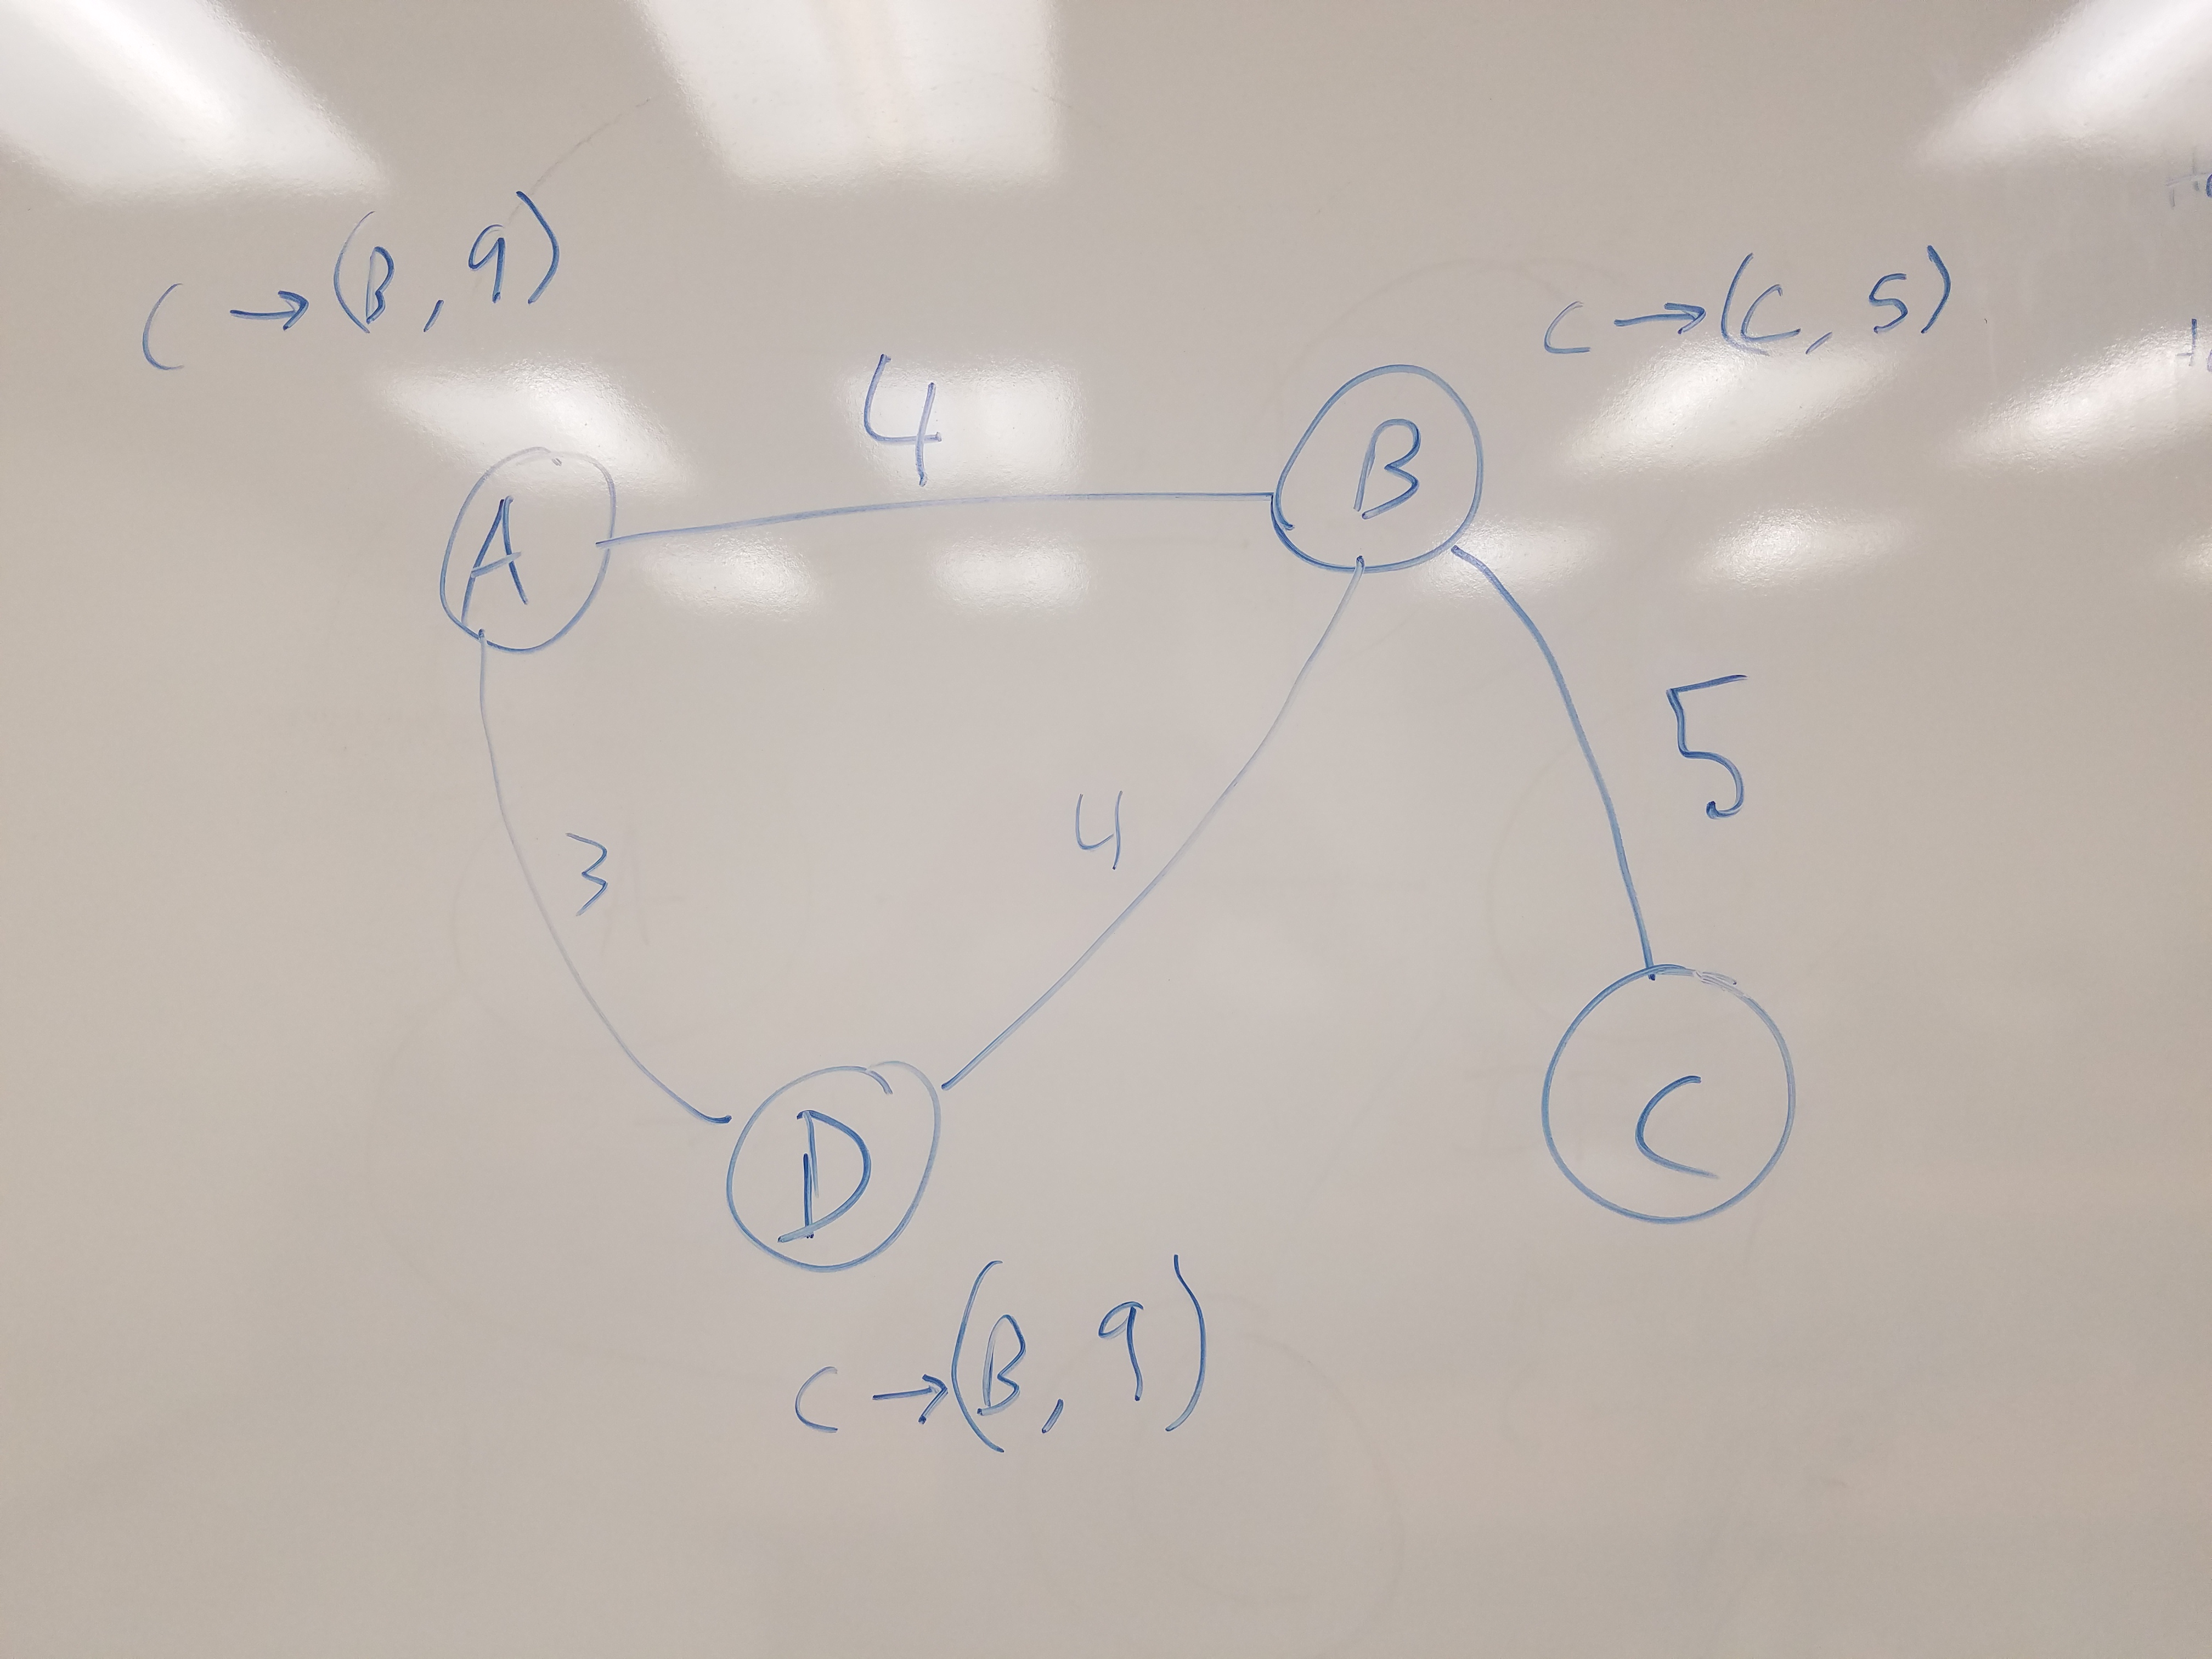 C → (B, 9)
C → (C, 5)
4
A
B
5
3
4
D
C
C → (B, 9)